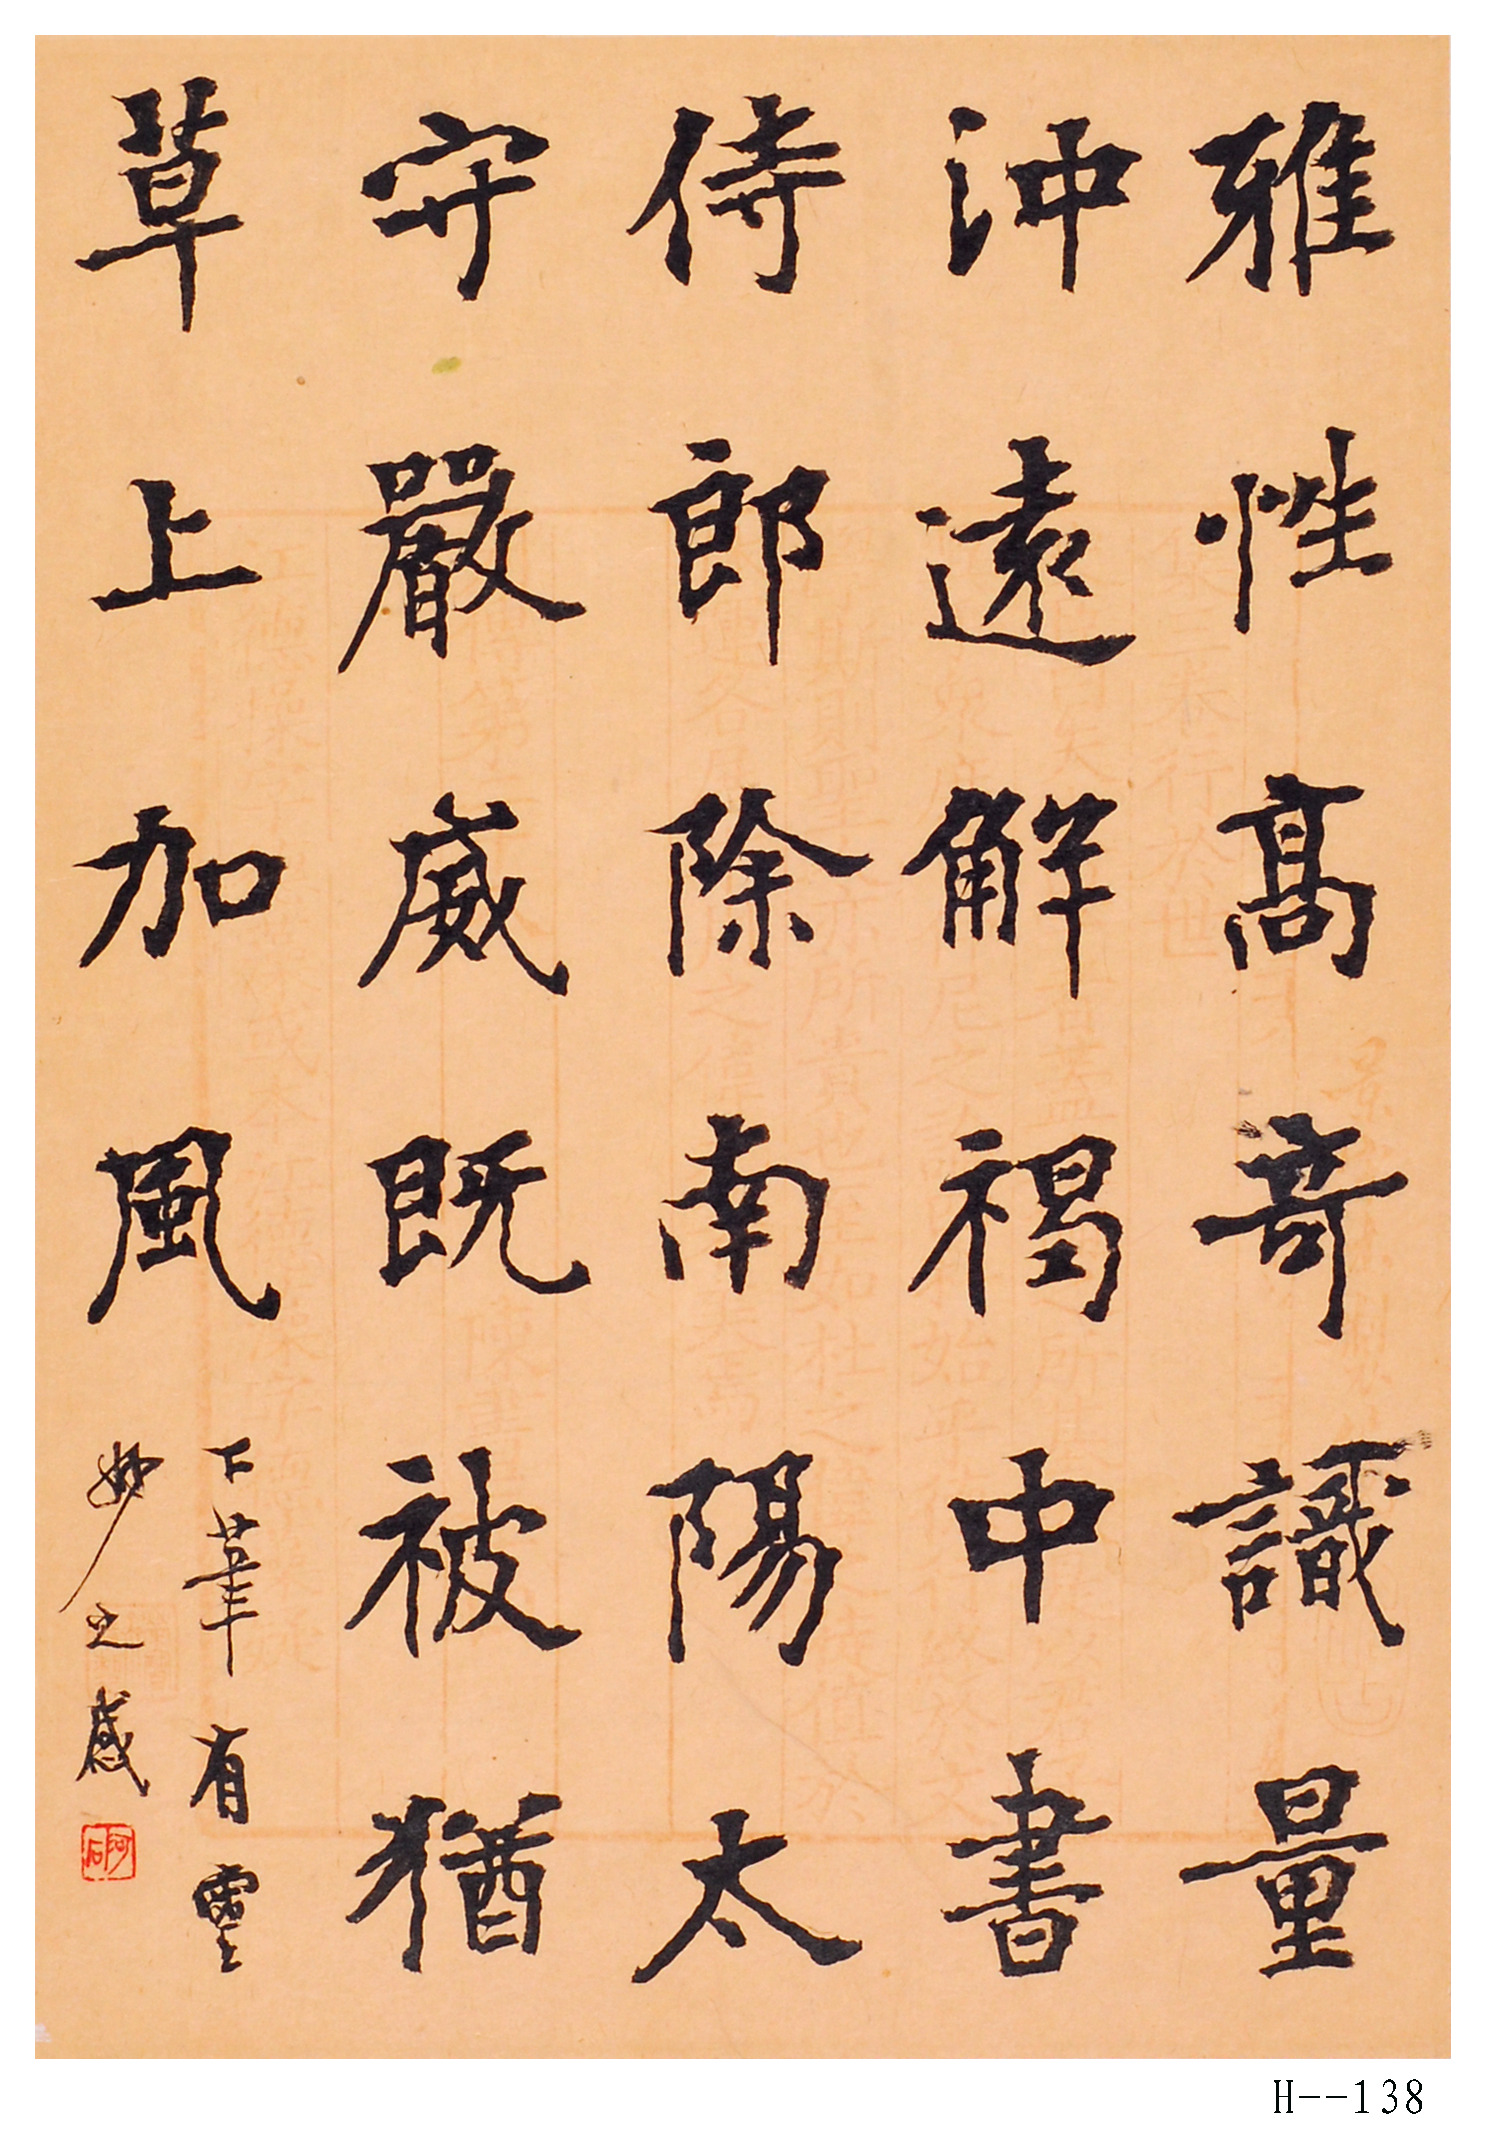 雅性高奇識量
沖遠解褐中書
侍郎除南陽太
守嚴威既被猶
草上加風
下筆有靈
妙之感
H--138